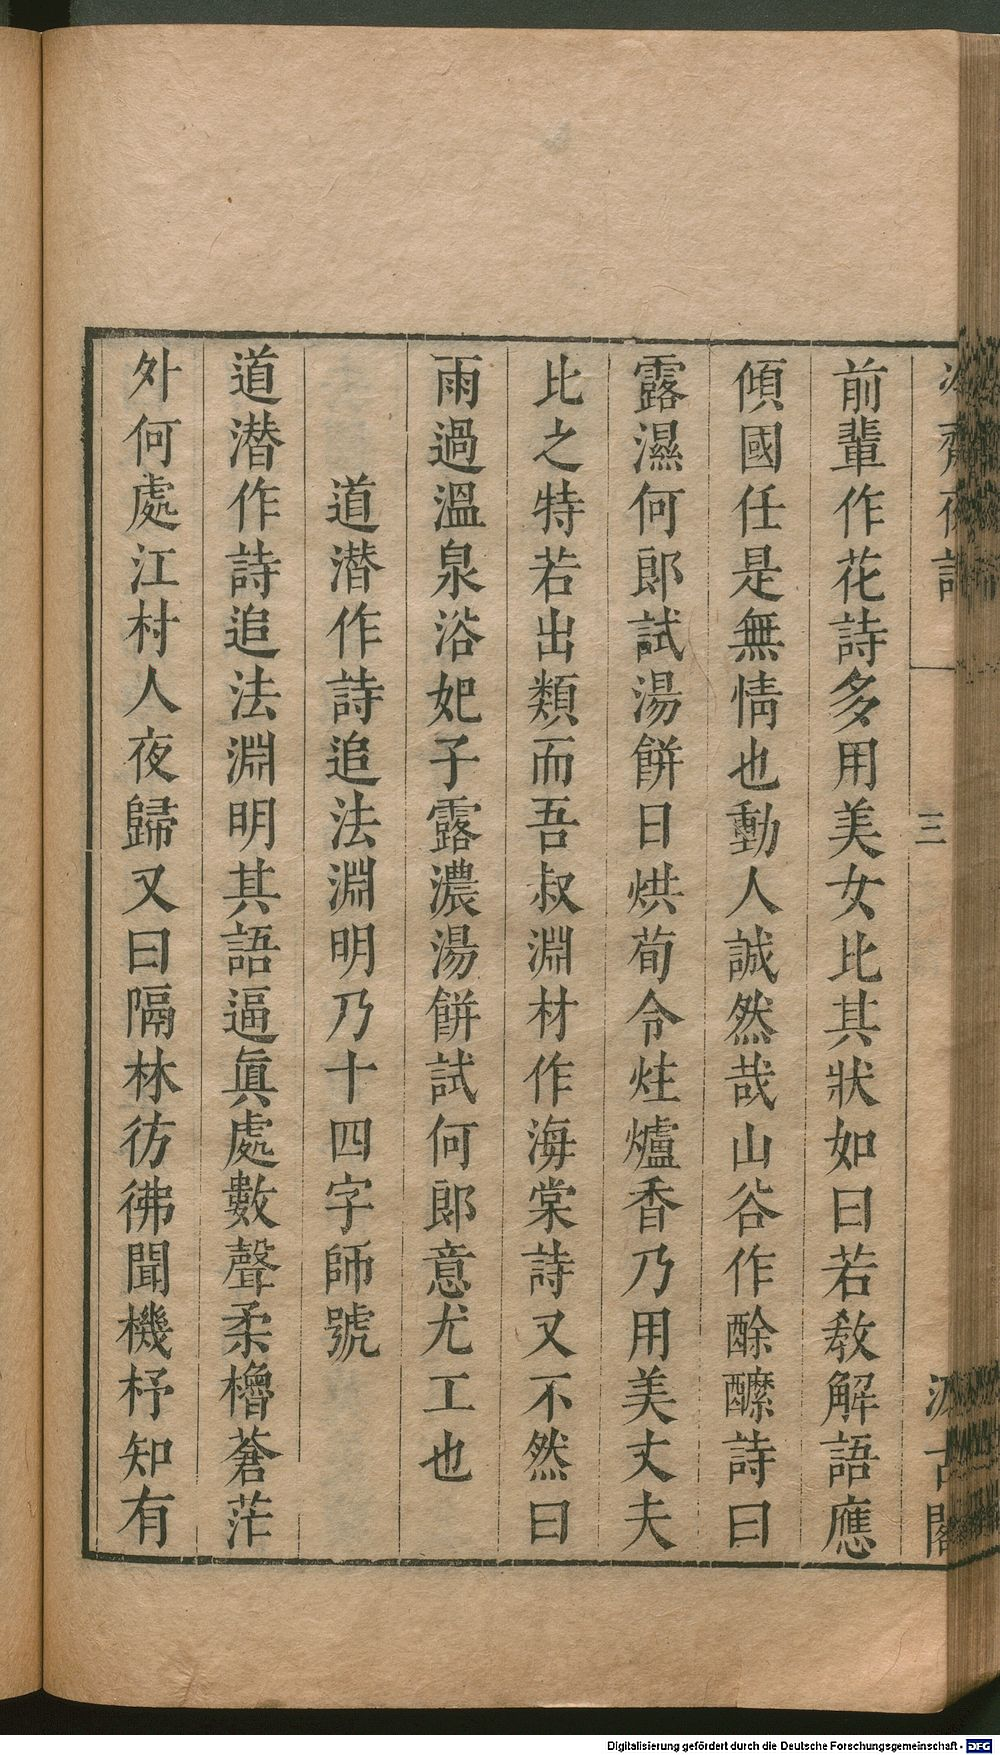 前輩作花詩多用美女比其狀如曰若教解語應
傾國任是無情也動人誠然哉山谷作酴醿詩曰
露濕何郎試湯餅日烘荀令炷爐香乃用美丈夫
比之特若出類而吾叔淵材作海棠詩又不然曰
雨過溫泉浴妃子露濃湯餅試何郎意尤工也
道潛作詩追法淵明乃十四字師號
道潛作詩追法淵明其語逼眞處數聲柔櫓蒼茫
外何處江村人夜歸又曰隔林彷彿聞機杼知有
齋夜
三
古閣
Digitalisierung gefördert durch die Deutsche Forschungsgemeinschaft - DFG